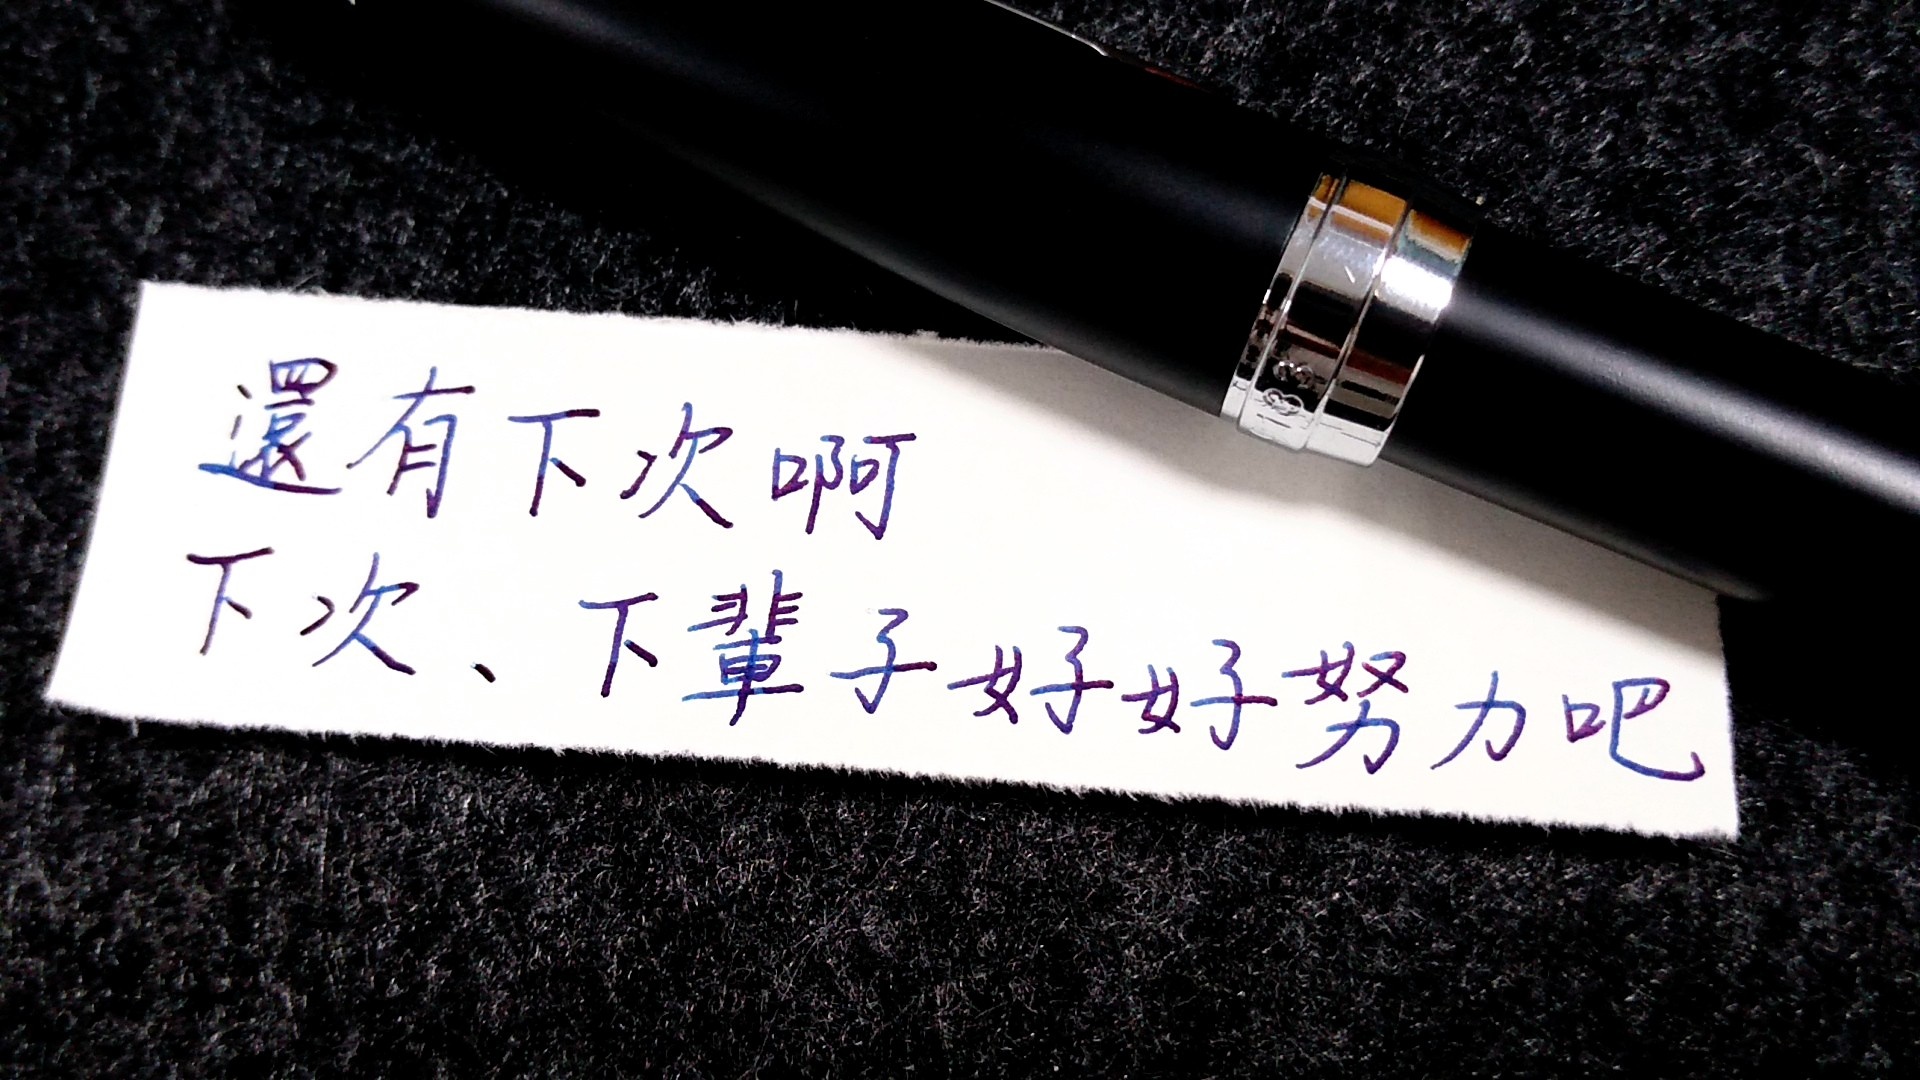 還有下次啊
下次、下輩子好好努力吧